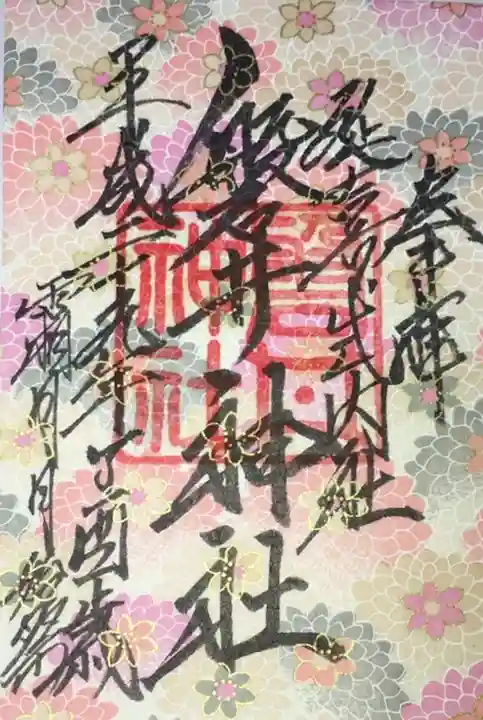 奉拝
延喜式内社
磐井神社
平成二十九年丁酉歳
霜月
磐井
神社